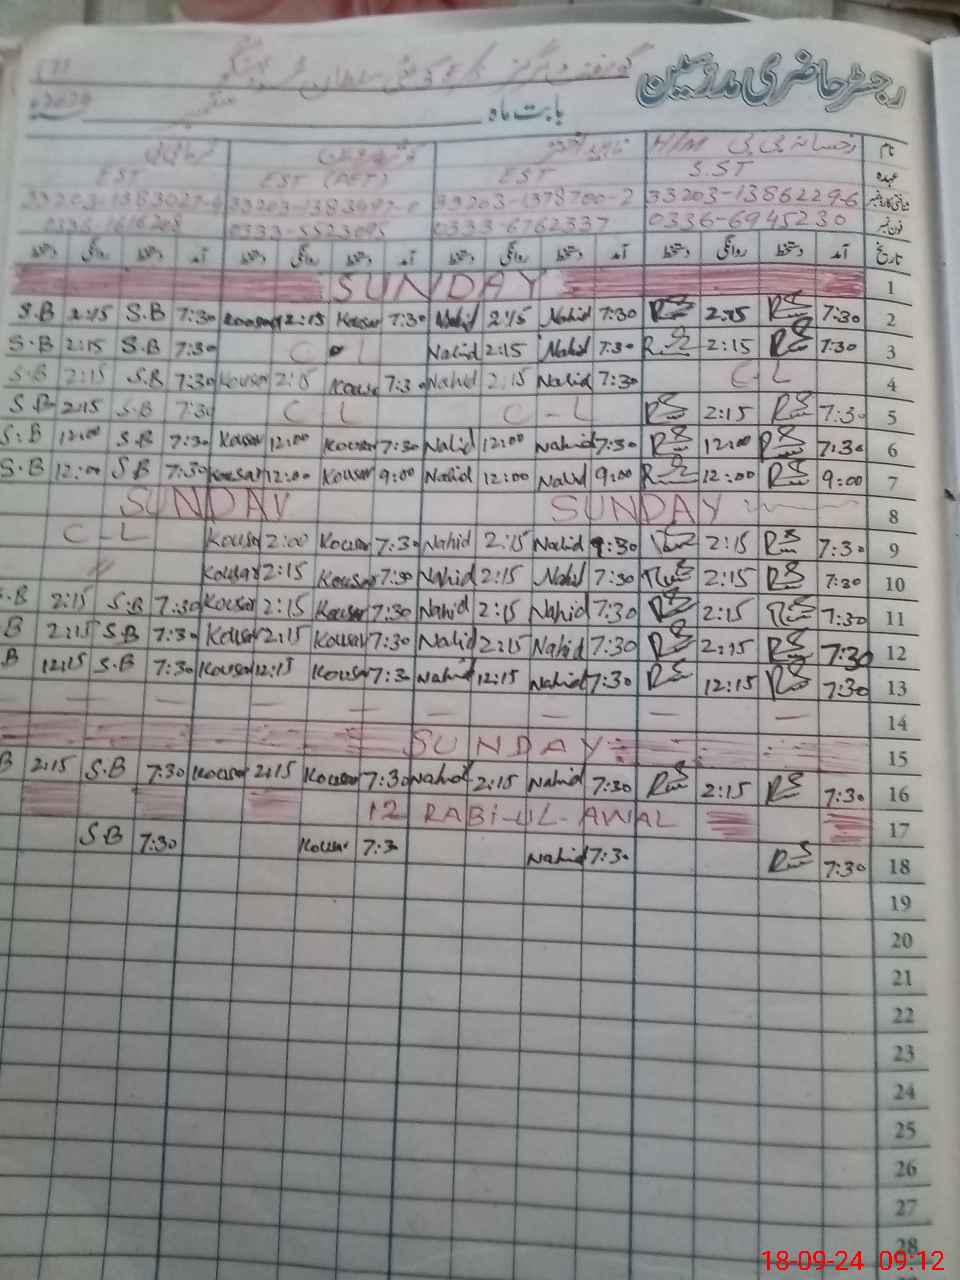 رجسٹر حاضری مدرسین
بابت ماہ
نام H/M
عہدہ S.ST EST EST (PET) EST
شناختی کارڈ نمبر 33203-1386229-6 33203-1378700-2
فون نمبر 0336-6945230 0333-6762337 0333-5523095
تاریخ آمد دستخط روانگی دستخط آمد دستخط روانگی دستخط آمد دستخط روانگی دستخط آمد دستخط روانگی دستخط
1 SUNDAY
S.B 2:15 S.B 7:30 Kousar 2:15 Kousar 7:30 Nahid 2:15 Nahid 7:30 2:15 7:30 2
S.B 2:15 S.B 7:30 C L Nahid 2:15 Nahid 7:30 2:15 7:30 3
S.B 2:15 S.B 7:30 Kousar 2:15 Kousar 7:30 Nahid 2:15 Nahid 7:30 C-L 4
S.B 2:15 S.B 7:30 C L C-L 2:15 7:30 5
S.B 12:00 S.B 7:30 Kousar 12:00 Kousar 7:30 Nahid 12:00 Nahid 7:30 12:00 7:30 6
S.B 12:00 S.B 7:30 Kousar 12:00 Kousar 9:00 Nahid 12:00 Nahid 9:00 12:00 9:00 7
SUNDAY SUNDAY 8
C-L Kousar 2:00 Kousar 7:30 Nahid 2:15 Nahid 9:30 2:15 7:30 9
Kousar 2:15 Kousar 7:30 Nahid 2:15 Nahid 7:30 2:15 7:30 10
.B 2:15 S.B 7:30 Kousar 2:15 Kousar 7:30 Nahid 2:15 Nahid 7:30 2:15 7:30 11
B 2:15 S.B 7:30 Kousar 2:15 Kousar 7:30 Nahid 2:15 Nahid 7:30 2:15 7:30 12
B 12:15 S.B 7:30 Kousar 12:15 Kousar 7:30 Nahid 12:15 Nahid 7:30 12:15 7:30 13
14
SUNDAY 15
B 2:15 S.B 7:30 Kousar 2:15 Kousar 7:30 Nahid 2:15 Nahid 7:30 2:15 7:30 16
12 RABI-UL-AWAL 17
S.B 7:30 Kousar 7:3 Nahid 7:30 7:30 18
19
20
21
22
23
24
25
26
27
28
18-09-24 09:12